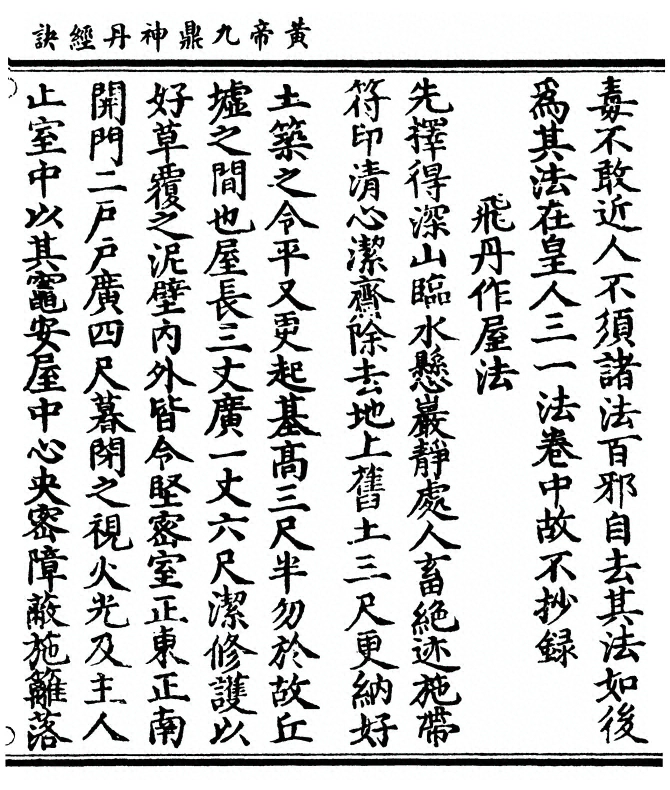 黃帝九鼎神丹經訣
毒不敢近人不須諸法百邪自去其法如後
爲其法在皇人三一法卷中故不抄録
飛丹作屋法
先擇得深山臨水懸巖靜處人畜絶迹施帶
符印清心潔齋除去地上舊土三尺更納好
土築之令平又更起基高三尺半勿於故丘
墟之間也屋長三丈廣一丈六尺潔修護以
好草覆之泥壁内外皆令堅密室正東正南
開門二戸戸廣四尺暮閉之視火光及主人
止室中以其竈安屋中心央密障蔽施籬落